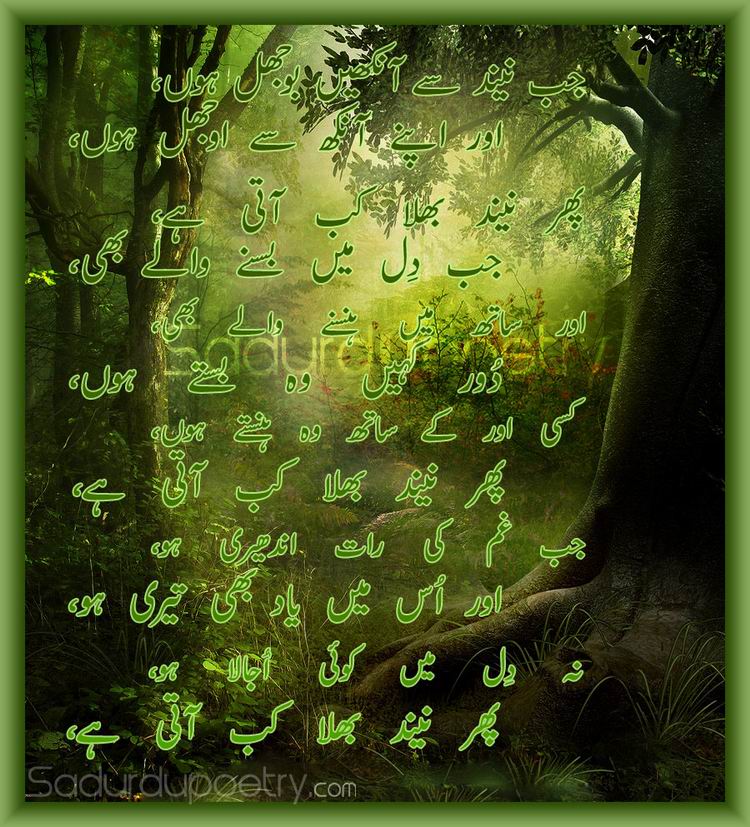 جب نیند سے آنکھیں بوجھل ہوں،
اور اپنے آنکھ سے اوجھل ہوں،
پھر نیند بھلا کب آتی ہے،
جب دِل میں بسنے والے بھی،
اور ساتھ میں ہنسنے والے بھی،
Sadurdupoetry
دُور کہیں وہ بستے ہوں،
کسی اور کے ساتھ وہ ہنستے ہوں،
پھر نیند بھلا کب آتی ہے،
جب غم کی رات اندھیری ہو،
اور اُس میں یاد بھی تیری ہو،
نہ دِل میں کوئی اُجالا ہو،
پھر نیند بھلا کب آتی ہے،
Sadurdupoetry.com